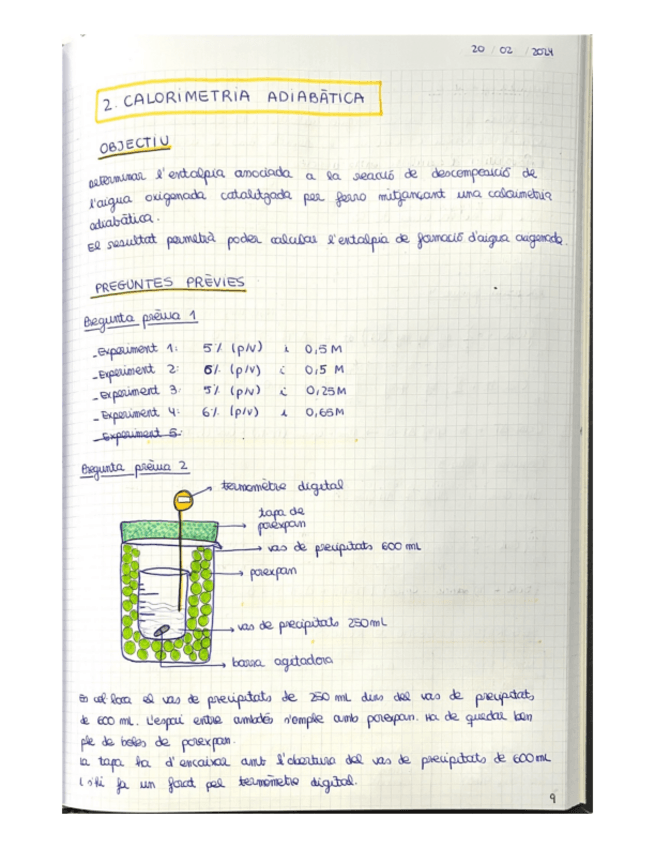 20 / 02 / 2024
2. CALORIMETRIA ADIABÀTICA
OBJECTIU
Determinar l'entalpia associada a la reacció de descomposició de
l'aigua oxigenada catalitzada per ferro mitjançant una calorimetria
adiabàtica.
El resultat permetrà poder calcular l'entalpia de formació d'aigua oxigenada.
PREGUNTES PRÈVIES
Pregunta prèvia 1
- Experiment 1: 5% (p/v) i 0,5 M
- Experiment 2: 6% (p/v) i 0,5 M
- Experiment 3: 5% (p/v) i 0,25 M
- Experiment 4: 6% (p/v) i 0,65 M
- Experiment 5:
Pregunta prèvia 2
termòmetre digital
tapa de
porexpan
vas de precipitats 600 mL
porexpan
vas de precipitats 250 mL
barra agitadora
Es col·loca el vas de precipitats de 250 mL dins del vas de precipitats
de 600 mL. L'espai entre ambdós s'omple amb porexpan. Ha de quedar ben
ple de boles de porexpan.
La tapa ha d'encaixar amb l'obertura del vas de precipitats de 600 mL
i s'hi fa un forat pel termòmetre digital.
9